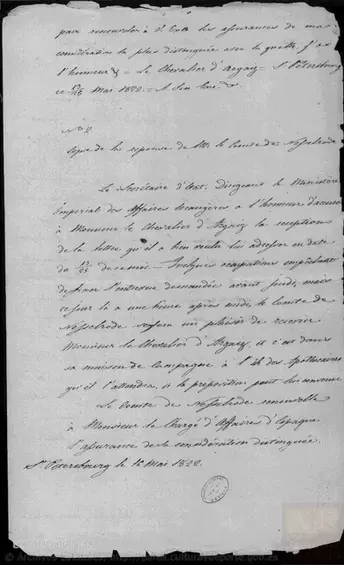 pour renouveler à S. Exce les assurances de ma
considération la plus distinguée avec la quelle, j'ai
l'honneur & - Le Chevalier d'Argaiz - St Pétersbourg
ce Mai 1822 - A Son Exce
No 2.
Copie de la reponse de Mr le Comte de Nesselrode
Le Secrétaire d'Etat, Dirigeant le Ministère
Imperial des Affaires étrangères a l'honneur d'
à Monsieur le Chevalier d'Argaiz la reception
de la lettre qu'il a bien voulu lui adresser en date
du de ce mois. - Quelques occupations empêchant
de fixer l'entrevue demandée avant jeudi, mais
ce jour là a une heure après midi le Comte de
Nesselrode se fera un plaisir de recevoir
Monsieur le Chevalier d'Argaiz, et c'est dans
sa maison de Campagne à l'île des Apothicaires
qu'il l'attendra, si la proposition peut lui convenir
Le Comte de Nesselrode renouvelle
à Monsieur le Chargé d'Affaires d'Espagne
l'assurance de sa considération distinguée.
St Petersbourg le Mai 1822.